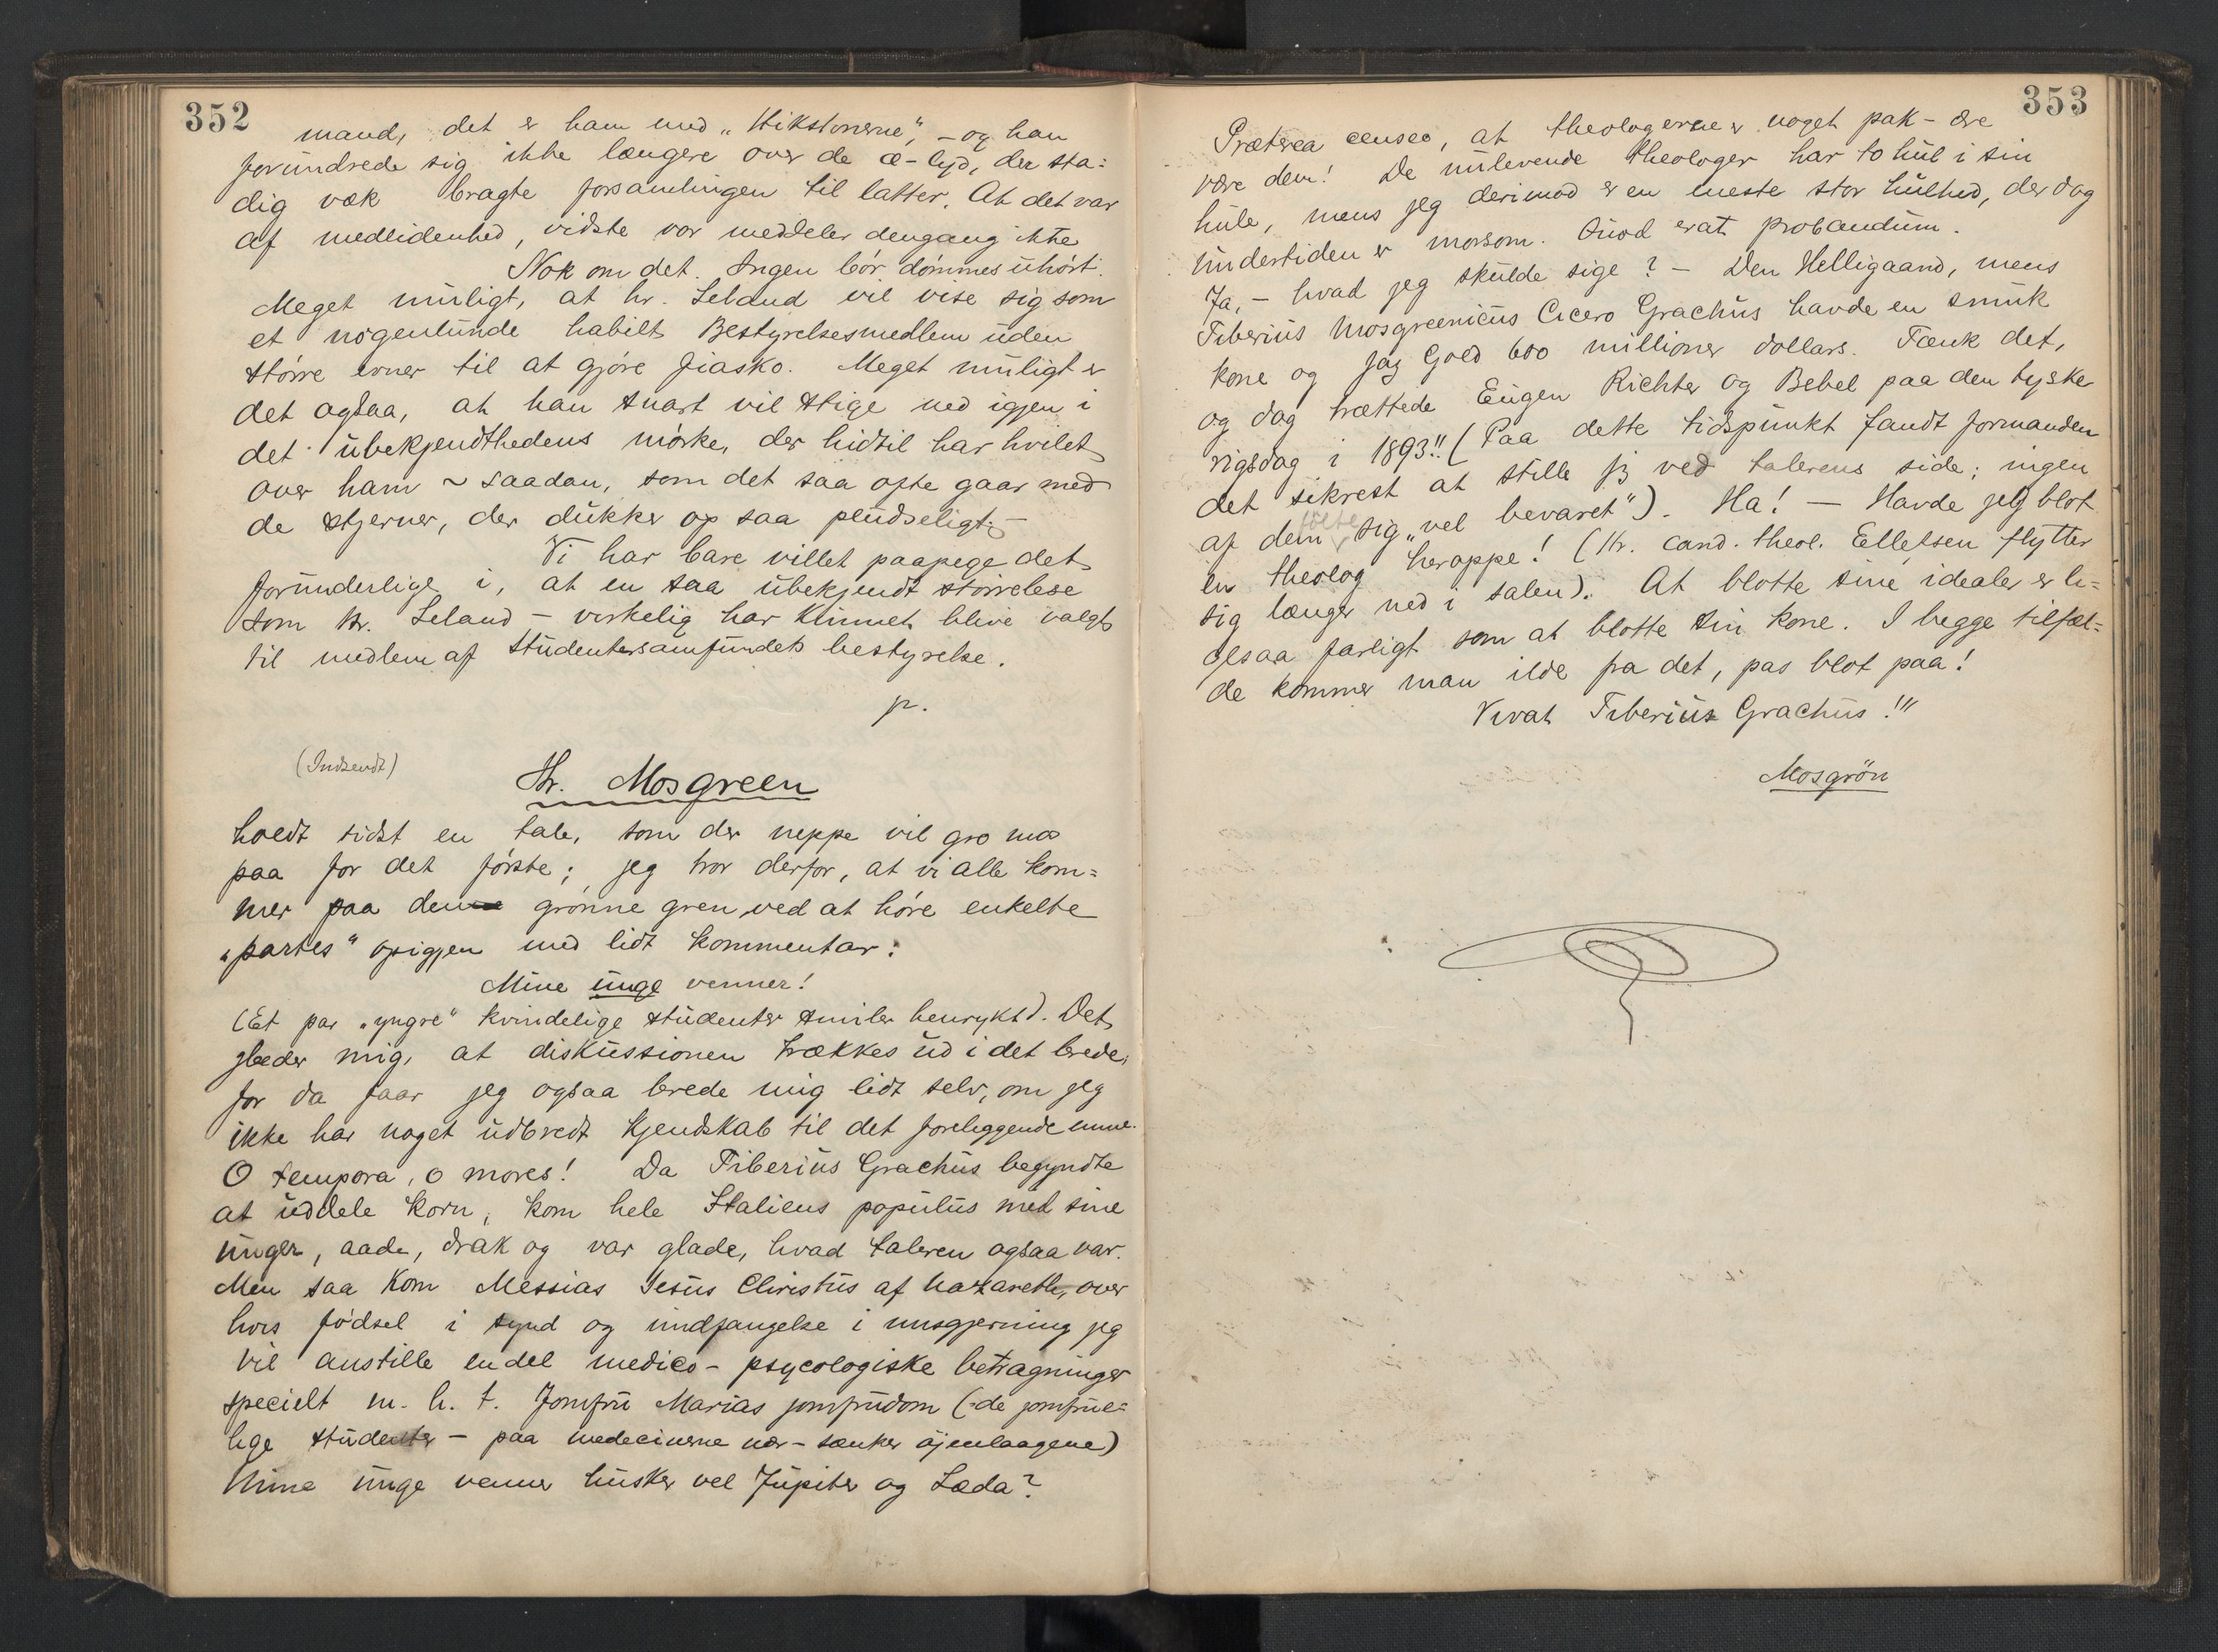 352
mand, det er ham med „Hikstonerne", - og han
forundrede sig ikke længere over de æ-lyd, der sta-
dig væk bragte forsamlingen til latter. At det var
af medlidenhed, vidste vor meddeler dengang ikke
Nok om det. Ingen bör dömmes uhört.
Meget muligt, at hr. Leland vil vise sig som
et nogenlunde habilt Bestyrelsesmedlem uden
större evner til at gjöre fiasko. Meget muligt er
det ogsaa, at han snart vil stige ned igjen i
det ubekjendthedens mörke, der hidtil har hvilet
over ham ~ saadan, som det saa ofte gaar med
de stjerner, der dukker op saa pludseligt. -
Vi har bare villet paapege det
forunderlige i, at en saa ubekjendt störrelse
som hr. Leland - virkelig har kunnet blive valgt
til medlem af Studentersamfundets bestyrelse.
p.
(Indsendt)
Hr. Mosgreen
holdt sidst en tale, som der neppe vil gro mos
paa for det förste; jeg tror derfor, at vi alle kom-
mer paa den grönne gren ved at höre enkelte
„partes" opigjen med lidt kommentar:
Mine unge venner!
(Et par „yngre" kvindelige studenter smiler henrykt). Det
glæder mig, at diskussionen trækkes ud i det brede,
for da faar jeg ogsaa brede mig lidt selv, om jeg
ikke har noget udbredt kjendskab til det foreliggende emne.
O tempora, o mores! Da Tiberius Grachus begyndte
at uddele korn, kom hele Italiens populus med sine
unger, aade, drak og var glade, hvad taleren ogsaa var.
Men saa kom Messias Jesus Christus af Nazareth, over
hvis födsel i synd og undfangelse i misgjerning jeg
vil anstille endel medico-psycologiske betragninger
specielt m. h. t. Jomfru Marias jomfrudom (-de jomfrue-
lige studenter - paa medecinerne nær - sænker öjenlaagene)
Mine unge venner husker vel Jupiter og Læda?
353
Præterea censeo, at theologerne er noget pak - ære
være dem! De nulevende theologer har to hul i sin
hule, mens jeg derimod er en eneste stor hulhed, der dog
undertiden er morsom. Quod erat probandum.
Ja, - hvad jeg skulde sige? - Den Helligaand, mens
Tiberius Mosgreenicus Cicero Grachus havde en smuk
kone og Jay Gold 600 millioner dollars. Tænk det,
og dog trættede Eugen Richter og Bebel paa den tyske
rigsdag i 1893!! (Paa dette tidspunkt fandt formanden
det sikrest at stille sig ved talerens side; ingen
af dem fölte sig „vel bevaret"). Ha! - Havde jeg blot
en theolog heroppe! (Hr. cand. theol. Elletsen flytter
sig længer ned i salen). At blotte sine idealer er li-
gesaa farligt som at blotte sin kone. I begge tilfæl-
de kommer man ilde fra det, pas blot paa!
Vivat Tiberius Grachus!"
Mosgrön